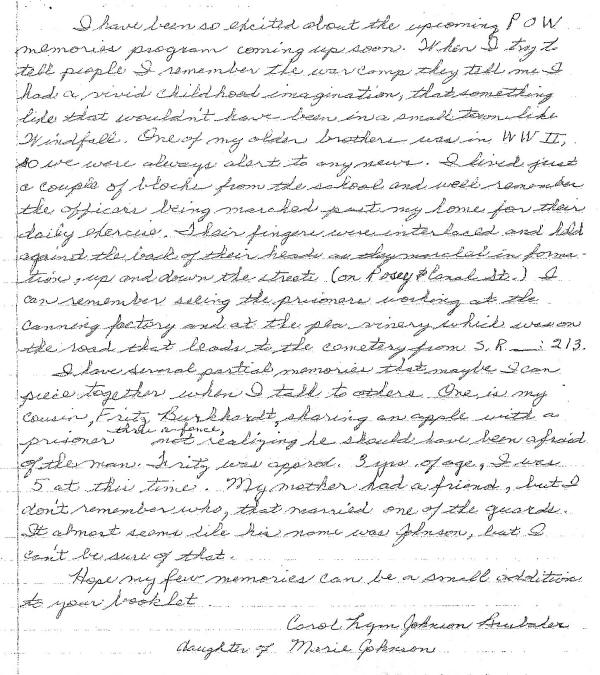 I have been so excited about the upcoming P O W
memories program coming up soon. When I try to
tell people I remember the war camp they tell me I
had a vivid childhood imagination, that something
like that wouldn't have been in a small town like
Windfall. One of my older brothers was in WW II,
so we were always alert to any news. I lived just
a couple of blocks from the school and well remember
the officers being marched past my home for their
daily exercise. Their fingers were interlaced and held
against the back of their heads as they marched in forma-
tion, up and down the streets (on Posey & Canal St.) I
can remember seeing the prisoners working at the
canning factory and at the pea vinery which was on
the road that leads to the cemetery from S.R. __: 213.
I have several partial memories that maybe I can
piece together when I talk to others. One is my
cousin, Fritz Burkhardt, sharing an apple with a
prisoner thru a fence, not realizing he should have been afraid
of the man. Fritz was approx. 3 yrs. of age, I was
5 at this time. My mother had a friend, but I
don't remember who, that married one of the guards.
It almost seems like his name was Johnson, but I
can't be sure of that.
Hope my few memories can be a small addition
to your booklet
Carol Lynn Johnson Brubaker
daughter of Marie Johnson